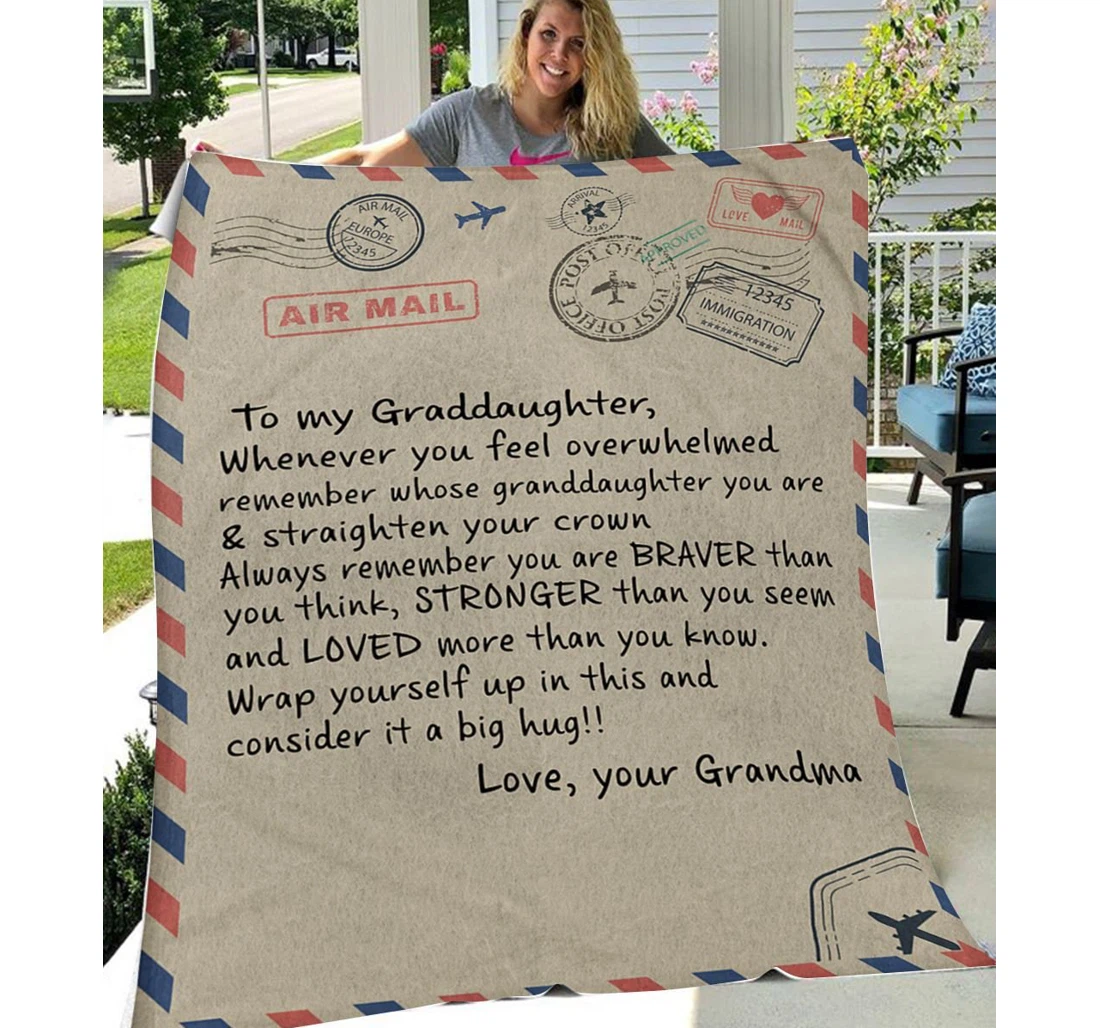 AIR MAIL
EUROPE
12345
ARRIVAL
12345
LOVE MAIL
APPROVED
POST OFFICE
POST OFFICE
12345
IMMIGRATION
AIR MAIL
To my Graddaughter,
Whenever you feel overwhelmed
remember whose granddaughter you are
& straighten your crown
Always remember you are BRAVER than
you think, STRONGER than you seem
and LOVED more than you know.
Wrap yourself up in this and
consider it a big hug!!
Love, your Grandma